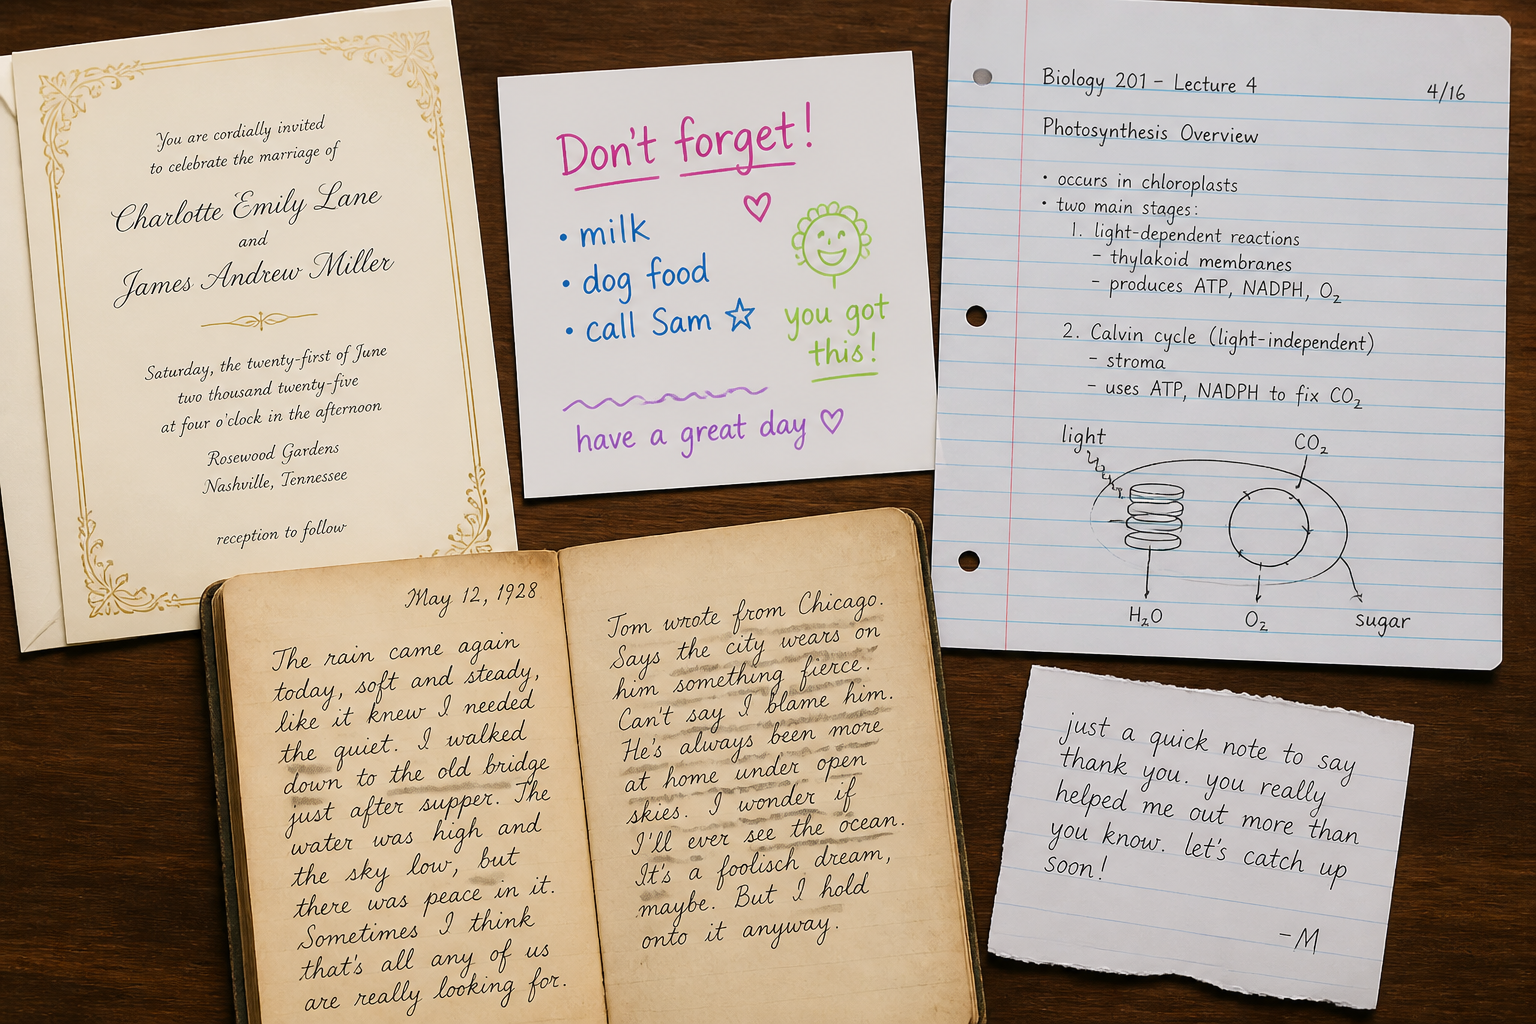 You are cordially invited
to celebrate the marriage of
Charlotte Emily Lane
and
James Andrew Miller
Saturday, the twenty-first of June
two thousand twenty-five
at four o'clock in the afternoon
Rosewood Gardens
Nashville, Tennessee
reception to follow
Don't forget!
• milk
• dog food
• call Sam ☆
you got
this!
have a great day ♡
Biology 201 - Lecture 4
4/16
Photosynthesis Overview
• occurs in chloroplasts
• two main stages:
1. light-dependent reactions
- thylakoid membranes
- produces ATP, NADPH, O₂
2. Calvin cycle (light-independent)
- stroma
- uses ATP, NADPH to fix CO₂
light
CO₂
H₂O
O₂
sugar
May 12, 1928
The rain came again
today, soft and steady,
like it knew I needed
the quiet. I walked
down to the old bridge
just after supper. The
water was high and
the sky low, but
there was peace in it.
Sometimes I think
that's all any of us
are really looking for.
Tom wrote from Chicago.
Says the city wears on
him something fierce.
Can't say I blame him.
He's always been more
at home under open
skies. I wonder if
I'll ever see the ocean.
It's a foolisch dream,
maybe. But I hold
onto it anyway.
just a quick note to say
thank you. you really
helped me out more than
you know. let's catch up
soon!
-M